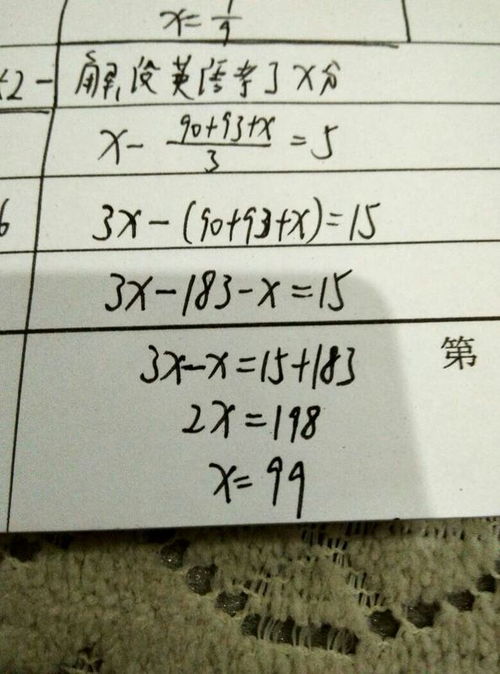 x=1/9
×2- 解,设英语考了x分
x- (90+93+x)/3 =5
6 3x-(90+93+x)=15
3x-183-x=15
3x-x=15+183
第
2x=198
x=99